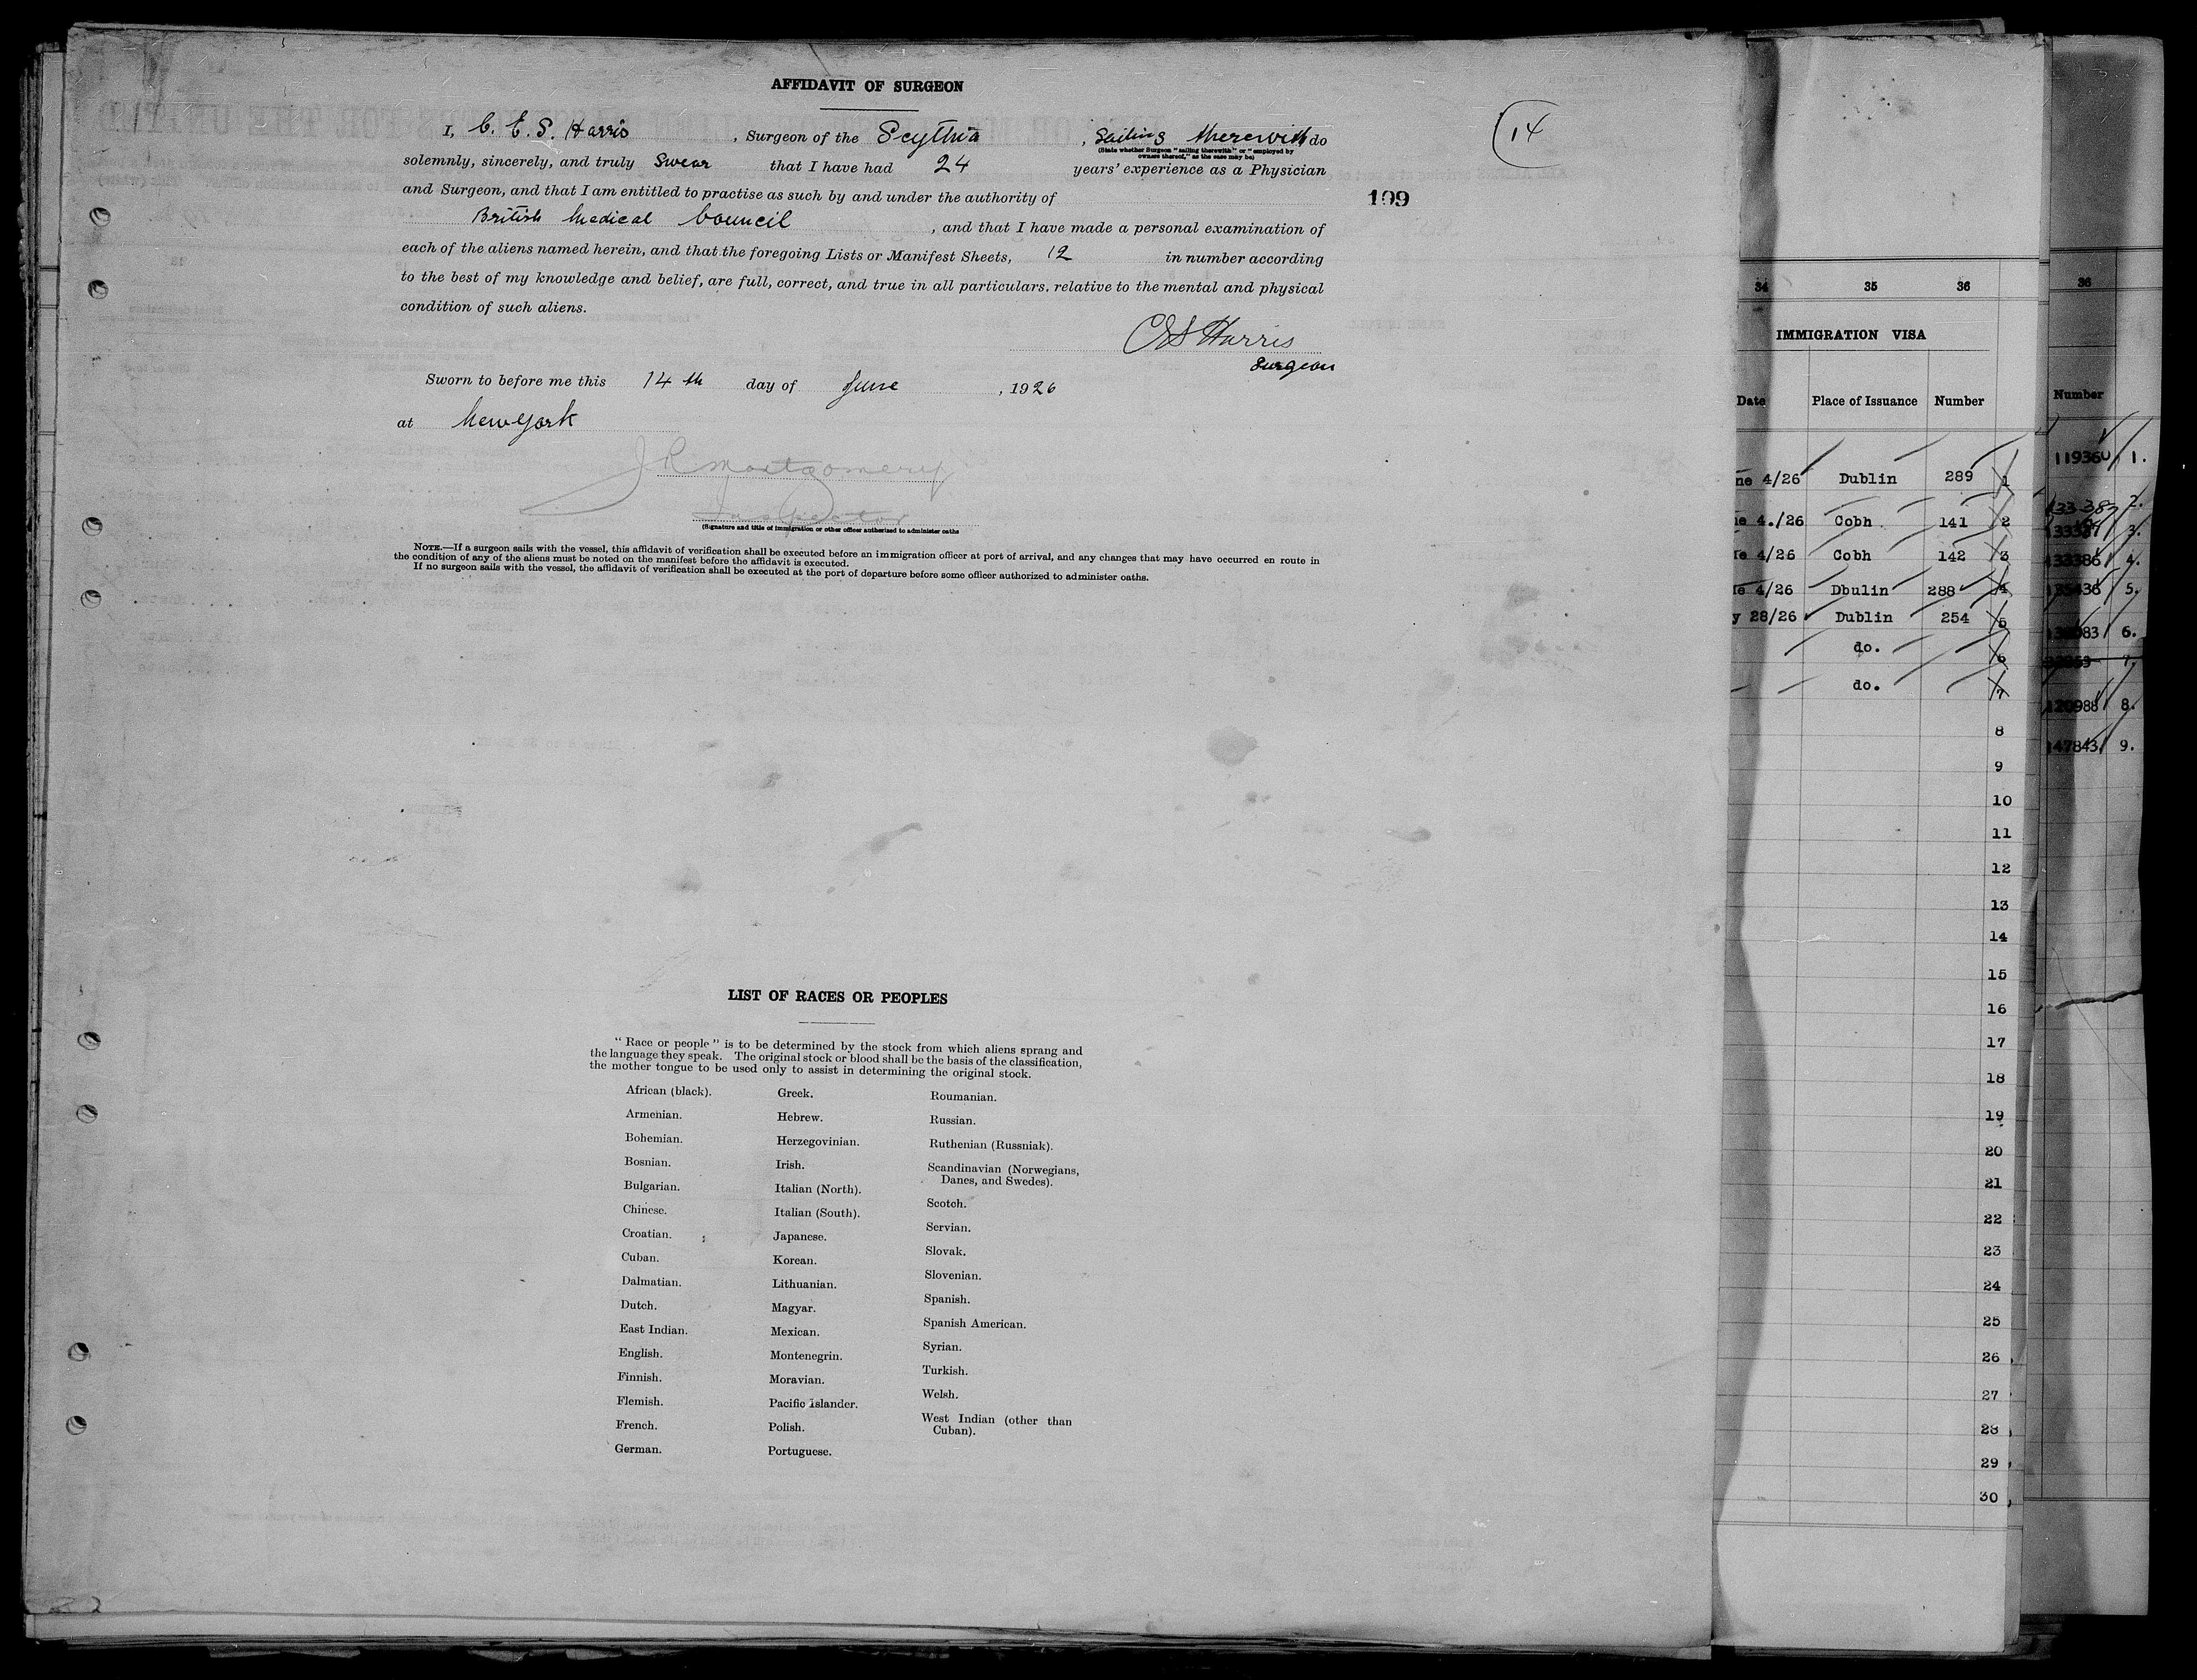 AFFIDAVIT OF SURGEON
14
I, C. E. S. Harris, Surgeon of the Scythia, Sailing therewith do
(State whether Surgeon "sailing therewith" or "employed by
owners thereof," as the case may be)
solemnly, sincerely, and truly Swear that I have had 24 years' experience as a Physician
and Surgeon, and that I am entitled to practise as such by and under the authority of
199
British Medical Council, and that I have made a personal examination of
each of the aliens named herein, and that the foregoing Lists or Manifest Sheets, 12 in number according
to the best of my knowledge and belief, are full, correct, and true in all particulars. relative to the mental and physical
condition of such aliens.
CES Harris
Surgeon
Sworn to before me this 14th day of June, 1926
at New York
J R Montgomery
Inspector
(Signature and title of immigration or other officer authorized to administer oaths
NOTE.—If a surgeon sails with the vessel, this affidavit of verification shall be executed before an immigration officer at port of arrival, and any changes that may have occurred en route in
the condition of any of the aliens must be noted on the manifest before the affidavit is executed.
If no surgeon sails with the vessel, the affidavit of verification shall be executed at the port of departure before some officer authorized to administer oaths.
LIST OF RACES OR PEOPLES
"Race or people" is to be determined by the stock from which aliens sprang and
the language they speak. The original stock or blood shall be the basis of the classification,
the mother tongue to be used only to assist in determining the original stock.
African (black).
Armenian.
Bohemian.
Bosnian.
Bulgarian.
Chinese.
Croatian.
Cuban.
Dalmatian.
Dutch.
East Indian.
English.
Finnish.
Flemish.
French.
German.
Greek.
Hebrew.
Herzegovinian.
Irish.
Italian (North).
Italian (South).
Japanese.
Korean.
Lithuanian.
Magyar.
Mexican.
Montenegrin.
Moravian.
Pacific islander.
Polish.
Portuguese.
Roumanian.
Russian.
Ruthenian (Russniak).
Scandinavian (Norwegians,
Danes, and Swedes).
Scotch.
Servian.
Slovak.
Slovenian.
Spanish.
Spanish American.
Syrian.
Turkish.
Welsh.
West Indian (other than
Cuban).
34 35 36
IMMIGRATION VISA
Date Place of Issuance Number
ne 4/26 Dublin 289 1
e 4./26 Cobh 141 2
e 4/26 Cobh 142 3
e 4/26 Dbulin 288 4
y 28/26 Dublin 254 5
do. 6
do. 7
8
9
10
11
12
13
14
15
16
17
18
19
20
21
22
23
24
25
26
27
28
29
30
36
Number
119360 1.
2.
3.
133386 4.
5.
6.
7.
120988 8.
147843 9.